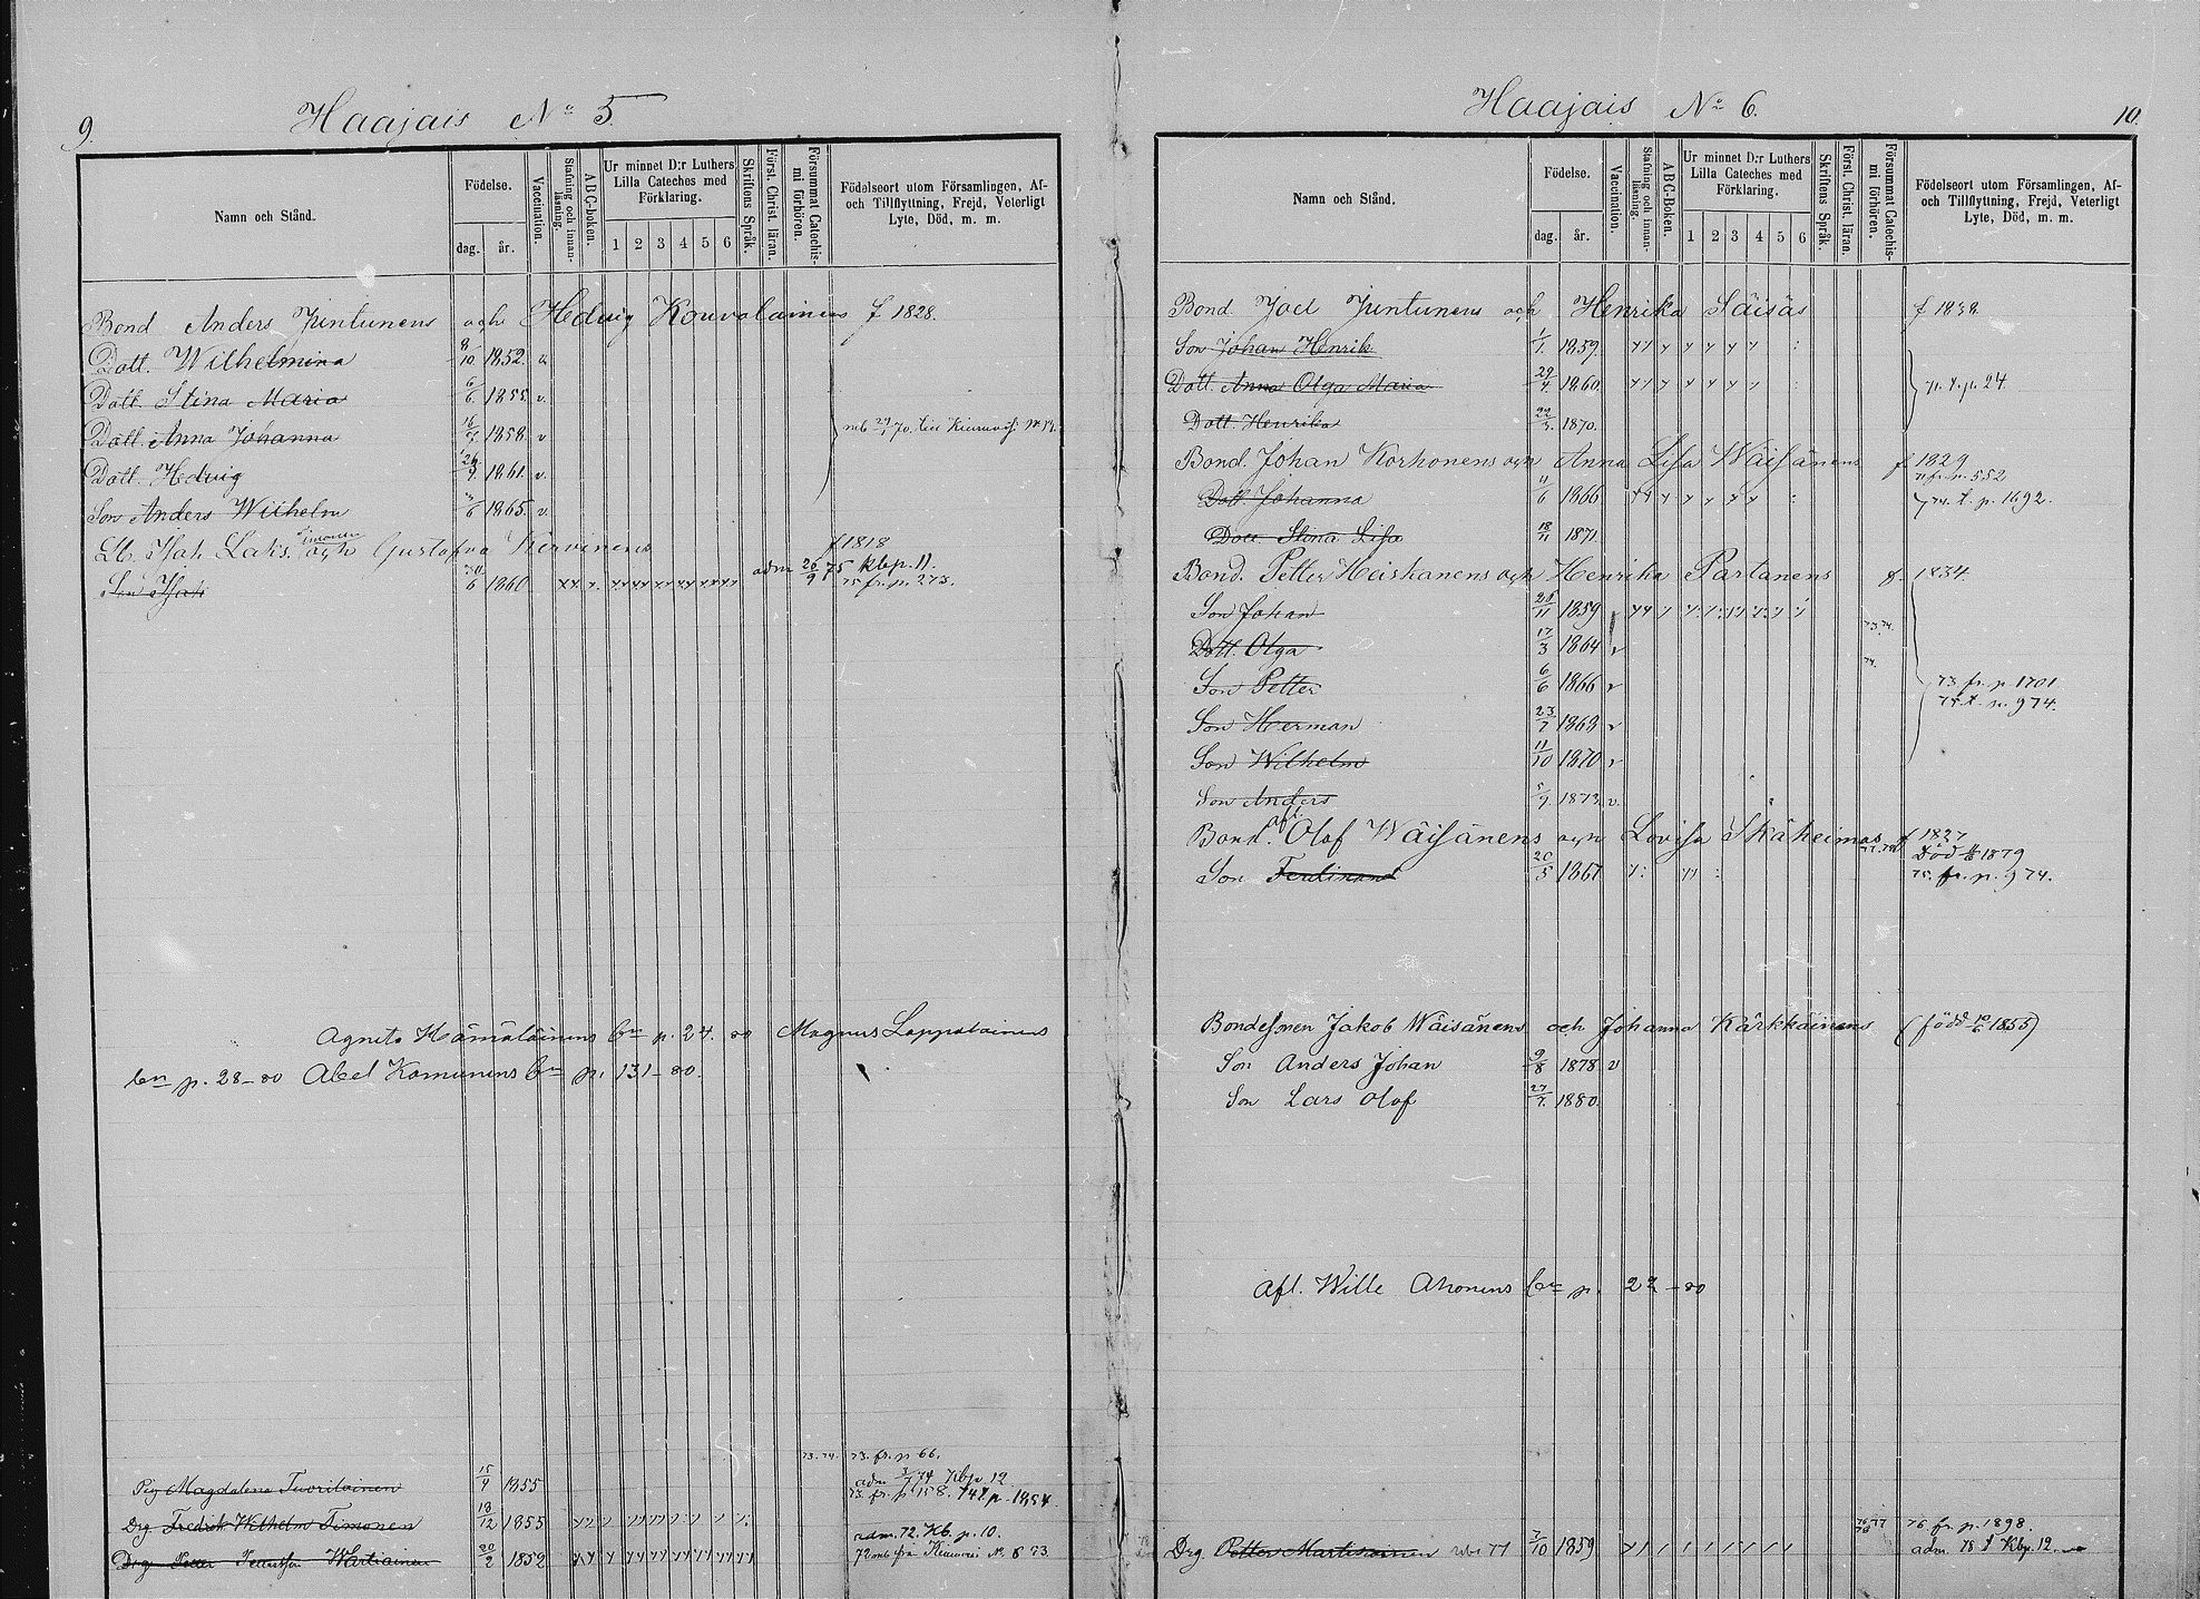 9.
Haajais No 5
Namn och Stånd.
Födelse.
dag.
år.
Vaccination.
Stafning och innanläsning.
ABC-boken.
Ur minnet D:r Luthers Lilla Cateches med Förklaring.
1 2 3 4 5 6
Skriftens Språk.
Först. Christ. läran.
Försummat Catechismi förhören.
Födelseort utom Församlingen, Af- och Tillflyttning, Frejd, Veterligt Lyte, Död, m. m.
Bond Anders Juntunens och Hedvig Kouvalainens f 1828.
Dott. Wilhelmina 8/10 1852. v
Dott. Stina Maria 6/6 1855. v.
Dott. Anna Johanna 16/7 1858. v
mb 29/1 70. till
Dott. Hedvig 26/9 1861. v.
Son Anders Wilhelm 1865. v.
Lb. Isak Laks. Timonen och Gustafva Kervinens f 1818
Son Isak 6 1860 adm 26/9 75 kbp. 11.
75 fr. p. 273.
Agneta Hämäläinens bn p. 24. 80 Magnus Lappalainens
bn p. 28-80 Abel Komunens bn p. 131-80.
73. 74. 73. fr. p 66.
Pig Magdalena Tuovilainen 15/4 1855 adm 3/7 74 Kbp 12
73. fr. p 158. 74 t. p. 1854.
Drg. Fredrik Wilhelm Timonen 18/12 1855
adm. 72. Kb. p. 10.
Drg. Petter Wartiainen 20/2 1852
10.
Haajais No 6.
Namn och Stånd.
Födelse.
dag.
år.
Vaccination.
Stafning och innanläsning.
ABC-Boken.
Ur minnet D:r Luthers Lilla Cateches med Förklaring.
1 2 3 4 5 6
Skriftens Språk.
Först. Christ. läran.
Försummat Catechismi förhören.
Födelseort utom Församlingen, Af- och Tillflyttning, Frejd, Veterligt Lyte, Död, m. m.
Bond. Joel Juntunens och Henrika Säisäs f 1838.
Son Johan Henrik 1/7. 1859.
Dott. Anna Olga Maria 29/4. 1860. 71. t. p. 24.
Dott. Henrika 22/3. 1870.
Bond. Johan Korhonens och Anna Lisa Wäisänens f 1829
71 fr. p. 552
Dott. Johanna 11/6 1866 74. t. p. 1692.
Dott Stina Lisa 18/11 1871.
Bond. Petter Heiskanens och Henrika Partanens f. 1834.
Son Johan 25/11 1859
73. 74.
Dott. Olga 17/3 1864 v
74.
Son Petter 6/6 1866 v
73 fr. p 1701
75. t. p. 974.
Son Herman 23/7 1868 v
Son Wilhelm 11/10 1870 v
Son Anders 5/9. 1873. v.
Bond. afl. Olof Wäisänens och Lovisa Ikäheimos f 1827
77. 78
Död 1879
Son Ferdinand 20/5 1861 75. fr. p. 974.
Bondesonen Jakob Wäisänens och Johanna Kärkkäinens (född 10/6 1855)
Son Anders Johan 9/8 1878 v
Son Lars Olof 27/7. 1880.
Afl. Wille Ahonens bn p. 22-80
76 77
78
76. fr. p. 1898.
Drg. Petter Martikainen 77 7/10 1859
adm. 78 Kbp. 12.